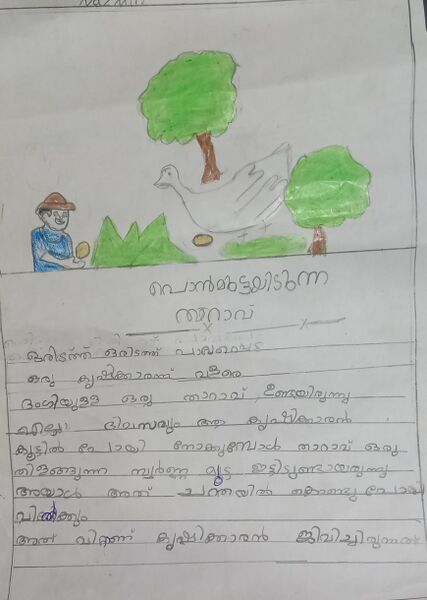 പൊൻമുട്ടയിടുന്ന
താറാവ്
ഒരിടത്ത് ഒരിടത്ത് പാവപ്പെട്ട
ഒരു കൃഷിക്കാരന്ന് വളരെ
ഭംഗിയുളള ഒരു താറാവ് ഉണ്ടായിരുന്നു
എല്ലാ ദിവസവും ആ കൃഷിക്കാരൻ
കൂട്ടിൽ പോയി നോക്കുമ്പോൾ താറാവ് ഒരു
തിളങ്ങുന്ന സ്വർണ്ണ മുട്ട ഇട്ടിട്ടുണ്ടായിരുന്നു
അയാൾ അത് ചന്തയിൽ കൊണ്ടുപോയി
വിൽക്കും
അത് വിറ്റാണ് കൃഷിക്കാരൻ ജീവിച്ചിരുന്നത്